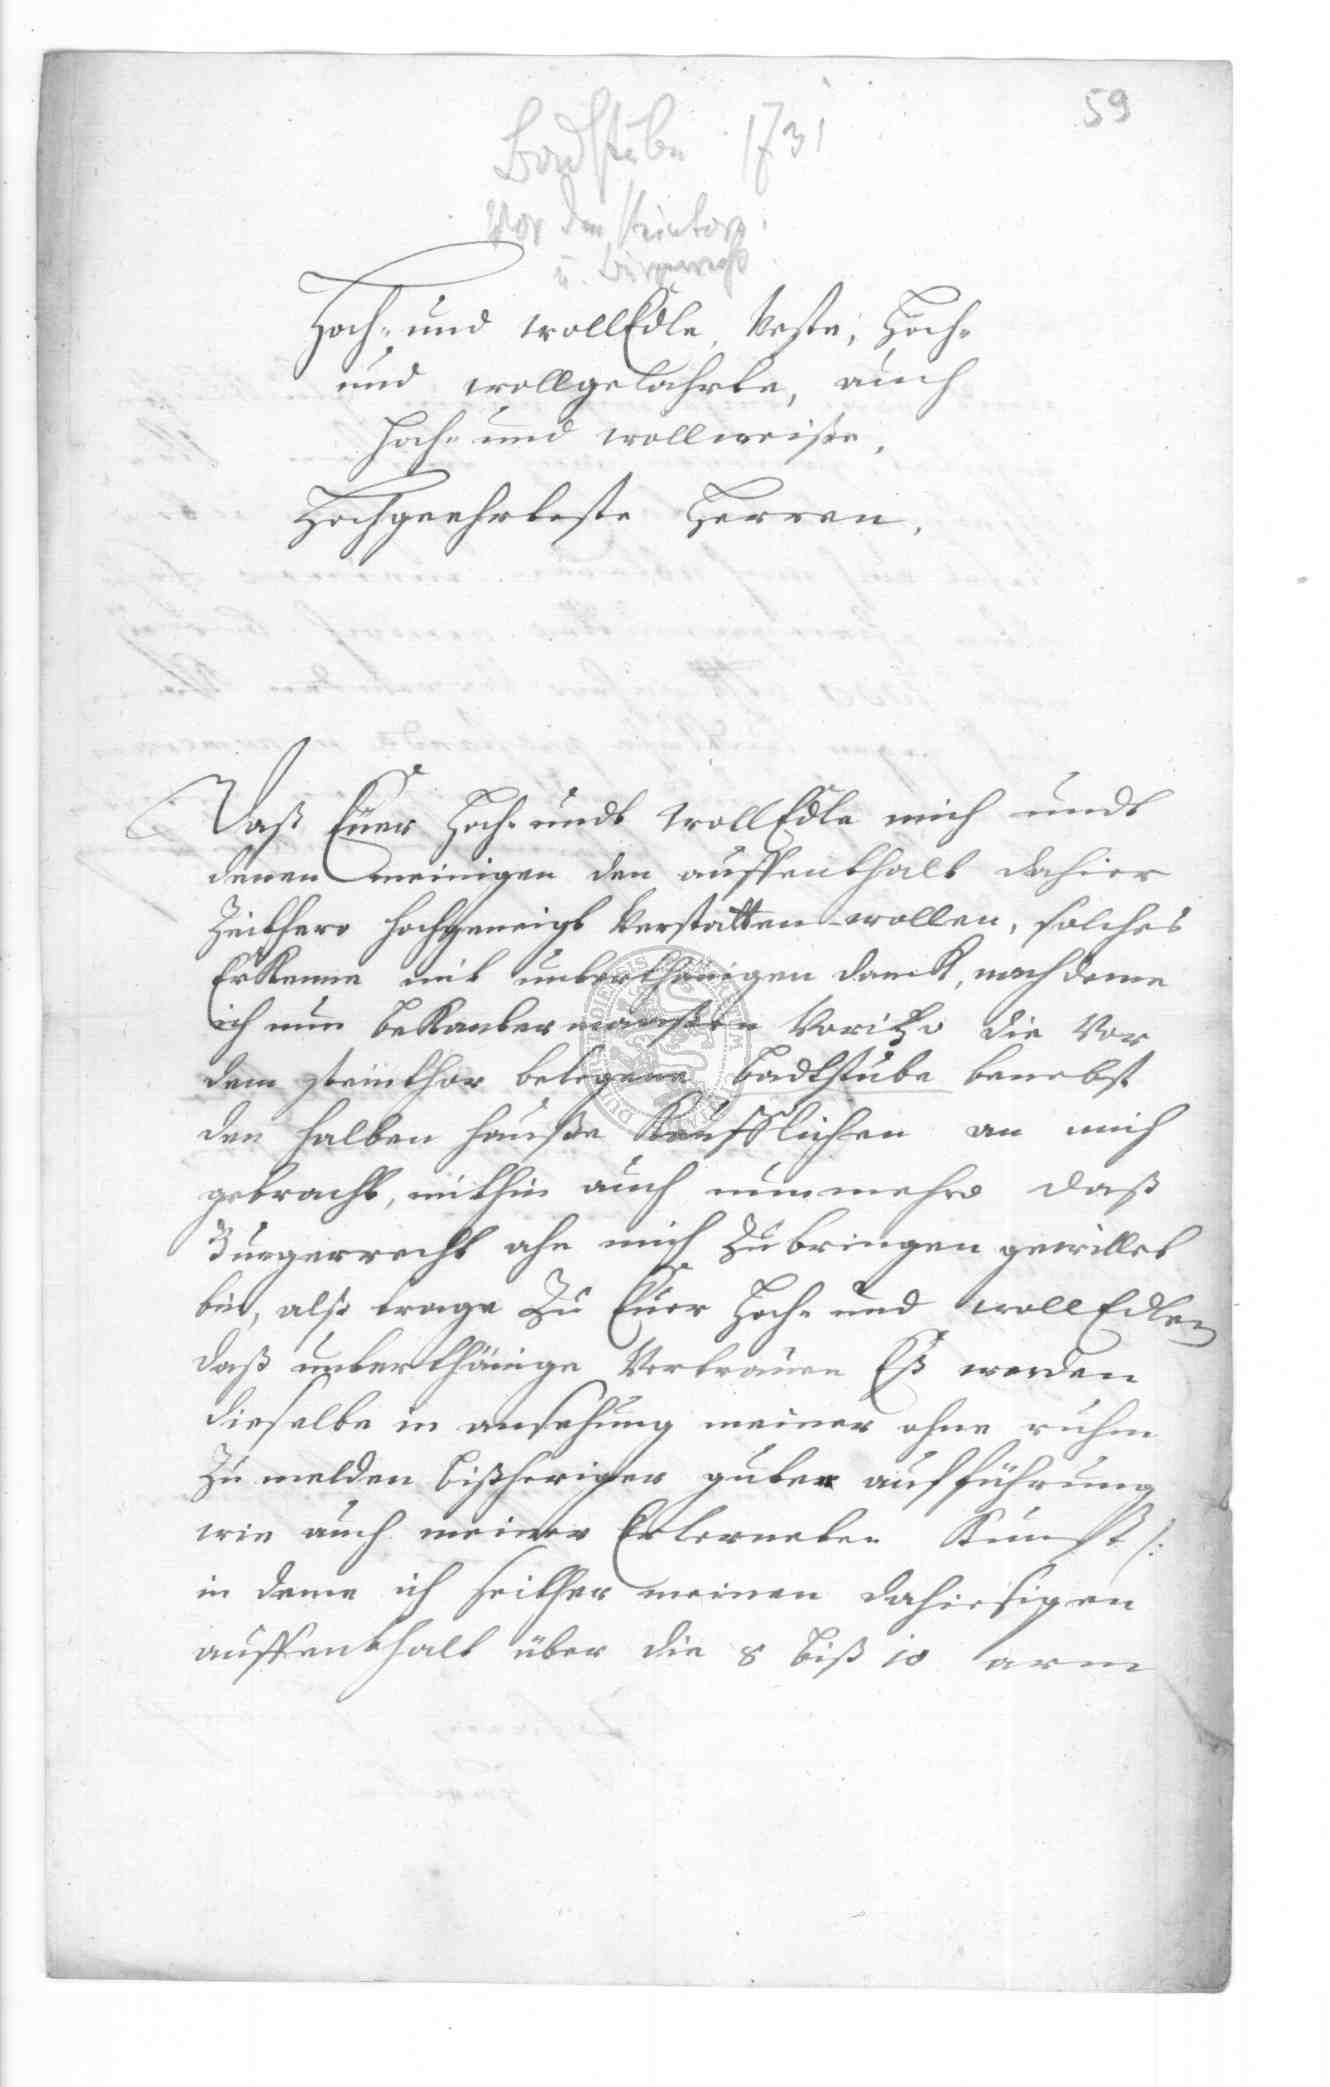 59
Badstube 1731
Vor dem steintor
u. Bürgerrecht
Hoch- und wollEdle, Veste, Hoch-
und wollgelahrte, auch
Hoch- und wollweiße,
Hochgeehrteste Herren,
Daß Euer Hoch- undt WollEdle mich undt
denen meinigen den auffenthalt dahier
Zeithero hochgeneigt verstatten wollen, solches
Erkenne mit unterthänigen danck, nach deme
ich nun bekantermaaßen voritzo die Vor
dem steinthor belegene Badtstube benebst
den halben hauße Kaufflichen an mich
gebracht, mithin auch nunmehro daß
Burgerrecht ahn mich zu bringen gewillet
bin, alß trage zu Euer Hoch- und wollEdlen
daß unterthänige Vertrauen Eß werden
dieselbe in ansehung meiner ohne ruhm
zu melden bißheriger guten aufführung
wie auch meiner Erlerneten Kunst /:
in deme ich seither meinen dahiesigen
auffenthalt über die 8 biß 10 arm